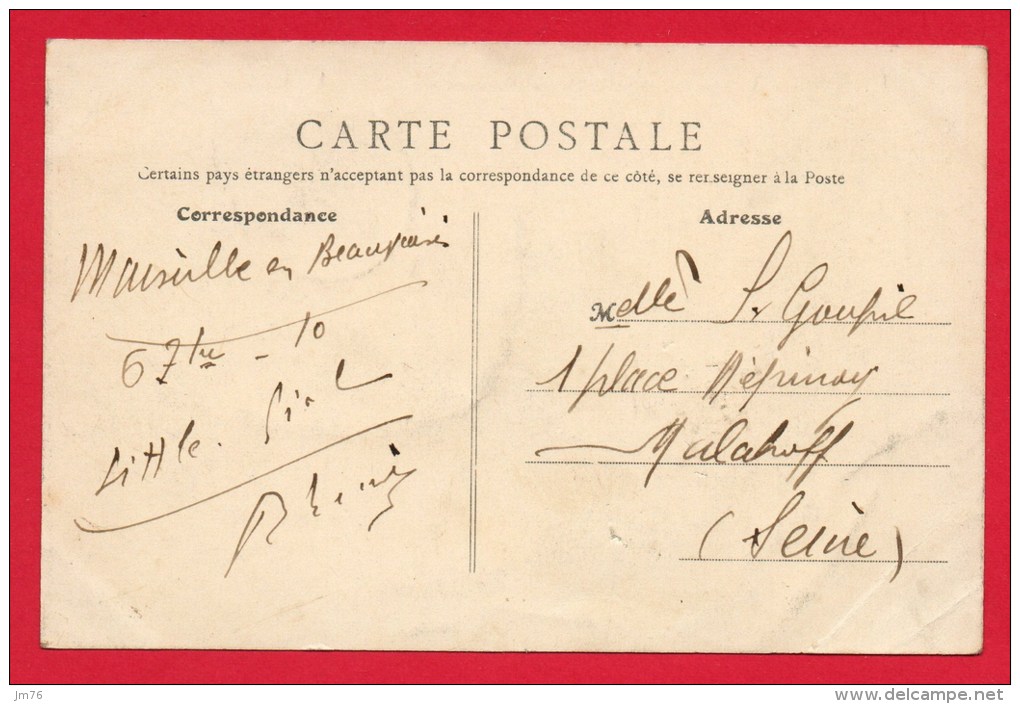 CARTE POSTALE
Certains pays étrangers n'acceptant pas la correspondance de ce côté, se renseigner à la Poste
Correspondance
Adresse
Marseille en Beauvaisis
6 7bre - 10
Little Girl
Melle S. Goupil
1 place Dépinoy
Malakoff
(Seine)
jm76
www.delcampe.net